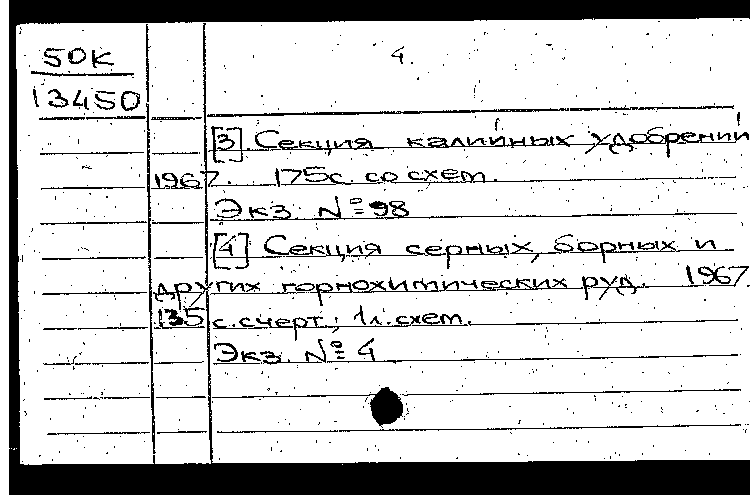 50К
4.
13450
[3]. Секция калийных удобрений
1967. 175с. со схем.
Экз. №98
[4] Секция серных, борных и
других горнохимических руд. 1967.
135 с. черт.; 1л. схем.
Экз. № 4